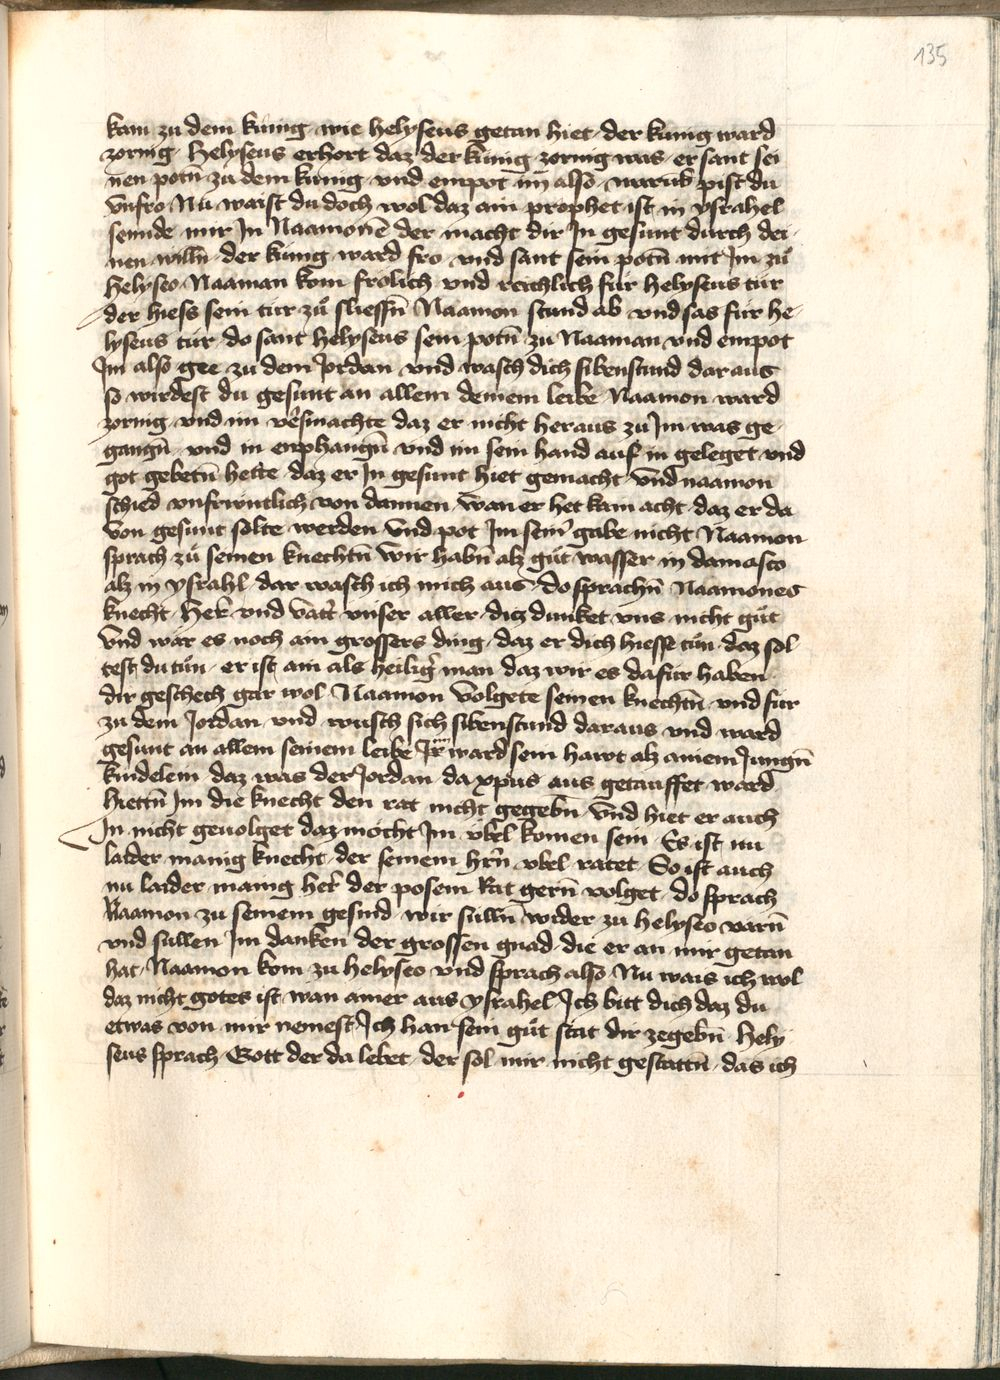 135
kam zu dem kunig wie helyseus getan hiet der kunig ward
zornig helyseus erhort daz der kunig zornig was er sant sei
nen potn̄ zu dem kunig vnd empot im̄ also warūb pist du
vnfro Nu waist du doch wol daz ain prophet ist in ysrahel
sennde mir In Naamonē der macht dir In gesunt durch dei
nen willn̄ der kunig ward fro vnd sant sein potn̄ mit Im zů
Helyseo Naaman kom frolich vnd reichlich fur helyseus tur
der hiess sein tur zů sliessn̄ Naamon stund ab vnd sas fur he
lyseus tur do sant helyseus sein potn̄ zu Naaman vnd empot
Im also gee zu dem Jordan vnd wasch dich sibenstund dar aus
so wirdest du gesunt an allem deinem leibe Naamon ward
zornig vnd im v̾smachte daz er nicht heraus zu Im was ge
gangn̄ vnd in enphangn̄ vnd im sein hand auf in geleget vnd
got gebetn̄ hette daz er In gesunt hiet gemacht vnd naamon
schied vnfrwntlich von dannen wan er het kain acht daz er da
von gesunt solte werden vnd pot Im sein̾ gabe nicht Naamon
sprach zů seinen knechtn̄ wir habn̄ alz gůt wasser in damasco
alz in ysrahl dar wasch ich mich aus do sprachn̄ Naamones
knecht Her̾ vnd vatt̾ vnser aller diz dunket vns nicht gůt
vnd wär es noch ain grossers ding daz er dich hiesse tůn daz sol
test du tůn er ist ain als heilig̾ man daz wir es dafur haben
dir geschech gar wol Naamon volgete seinen knechtn̄ vnd fur
zu dem Jordan vnd wusch sich sibenstund daraus vnd ward
gesunt an allem seinem leibe ward sein hawt alz ainem Jungn̄
kindelein daz was der Jordan da xpus aus getauffet ward
hiettn̄ Im die knecht den rat nicht gegebn̄ vnd hiet er auch
In nicht geuolget daz mocht Im vbel komen sein Es ist nu
laider manig knecht der seinem hrn̄ vbel ratet So ist auch
nu laider manig her̾ der posem Rat gern̄ volget do sprach
Naamon zu seinem gesind wir sulln̄ wider zu helyseo varn̄
vnd sullen Im danken der grossen gnad die er an mir getan
hat Naamon kom zu helyseo vnd sprach also Nu wais ich wol
daz nicht gotes ist wan ainer aus ysrahel Ich bitt dich daz du
etwas von mir nemest Ich han sein gůt stat dir zegebn̄ Hely
seus sprach Gott der da lebet der sol mir nicht gestattn̄ das ich